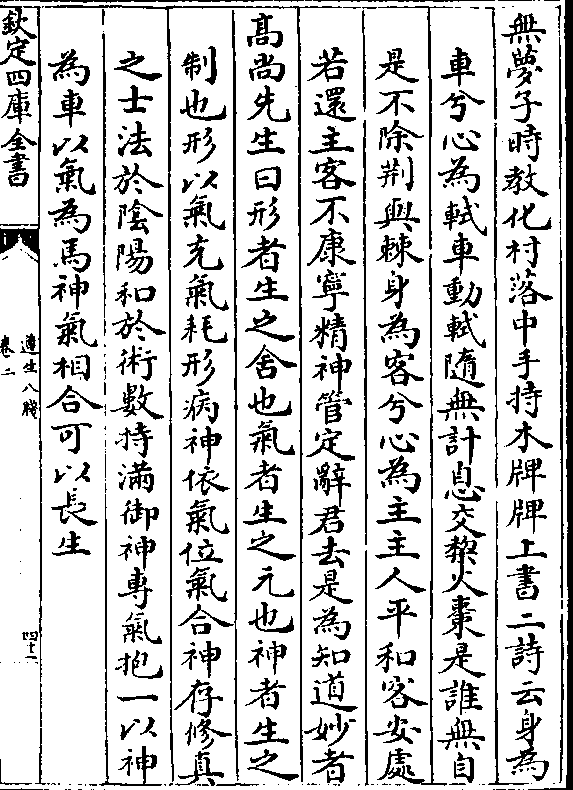 無夢子時教化村落中手持木牌牌上書二詩云身為
車兮心為軾車動軾隨無計息交棃火棗是誰無自
是不除荆與棘身為客兮心為主主人平和客安處
若還主客不康寧精神管定辭君去是為知道妙者
髙尚先生曰形者生之舍也氣者生之元也神者生之
制也形以氣充氣耗形病神依氣位氣合神存修真
之士法於陰陽和於術數持滿御神專氣抱一以神
為車以氣為馬神氣相合可以長生
欽定四庫全書
遵生八牋
卷二
四十二